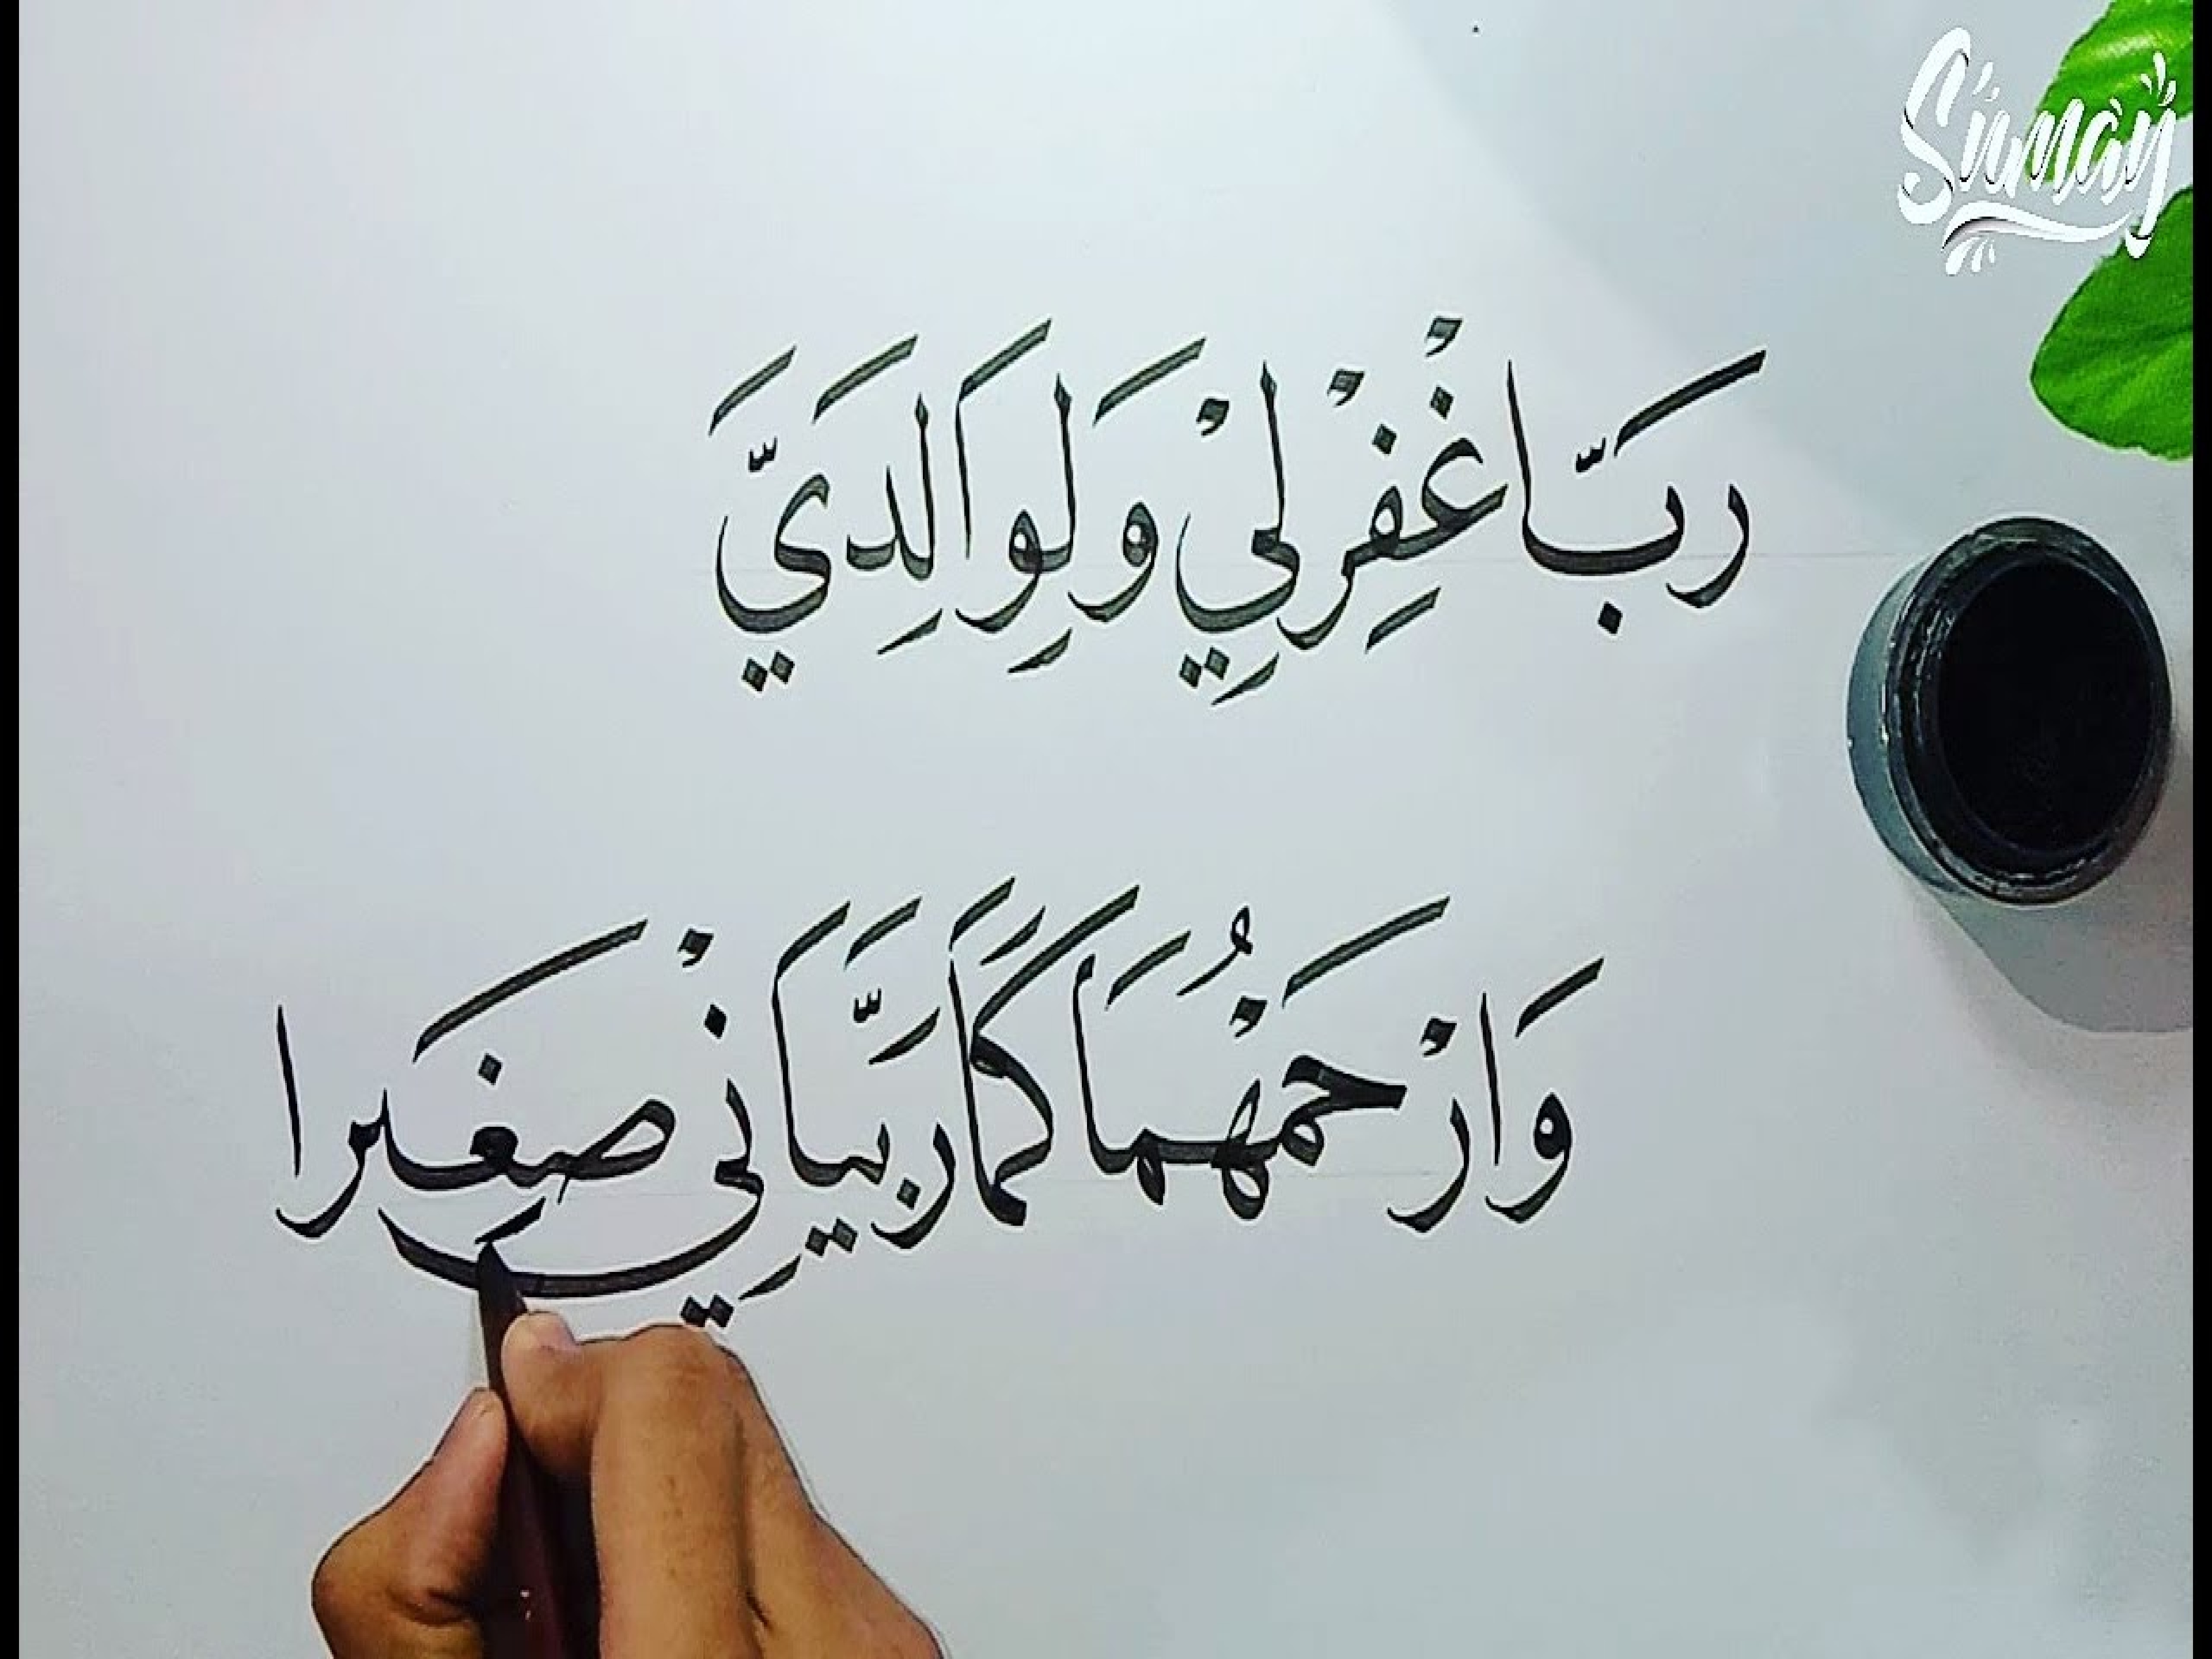 Sumay
رَبِّ اغْفِرْ لِيْ وَلِوَالِدَيَّ
وَارْحَمْهُمَا كَمَا رَبَّيَانِيْ صَغِيرًا